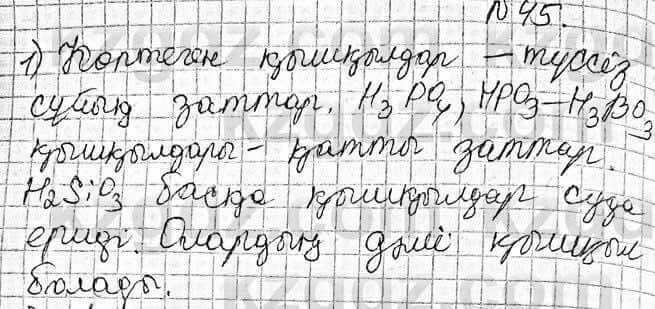 №45.
1) Көптеген қышқылдар – түссіз
сұйық заттар. H₃PO₄, HPO₃–H₃BO₃
қышқылдары – қатты заттар.
H₂SiO₃ басқа қышқылдар суда
ериді. Олардың дәмі қышқыл
болады.